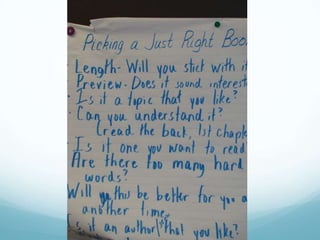 Picking a Just Right Boo
- Length- Will you stick with it
- Preview- Does it sound interest
- Is it a topic that you like?
- Can you understand it?
(read the back, 1st chapt
- Is it one you want to read
Are there too many hard
words?
Will this be better for you a
another time.
Is it an author that you like?